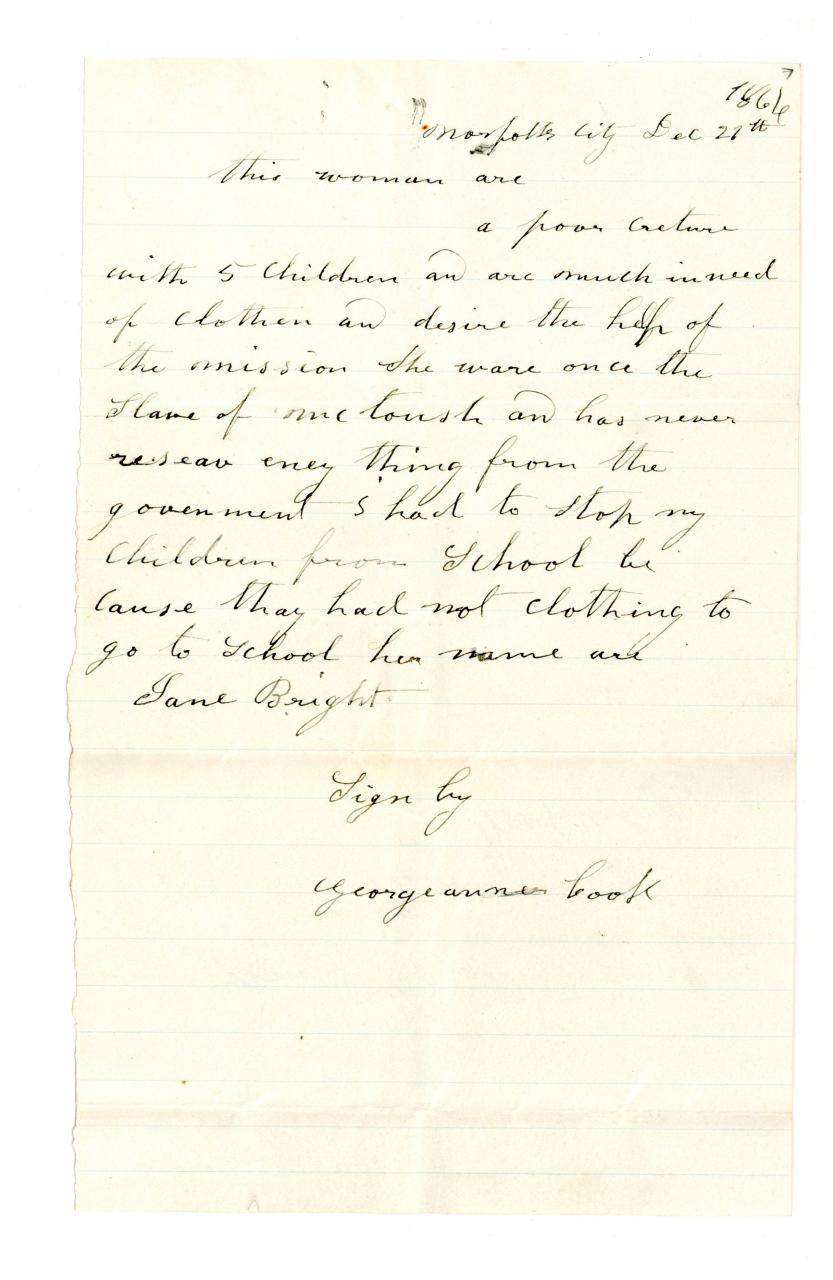 1866
Norfolk City Dec 27th
this woman are
a poor creture
with 5 Children and are much in need
of Clothen and desire the help of
the mission She ware once the
Slave of mc toush and has never
reseav eney thing from the
govenment I had to stop my
Children from School be
cause thay had not clothing to
go to School her name are
Jane Bright
Sign by
georgeanne Cook